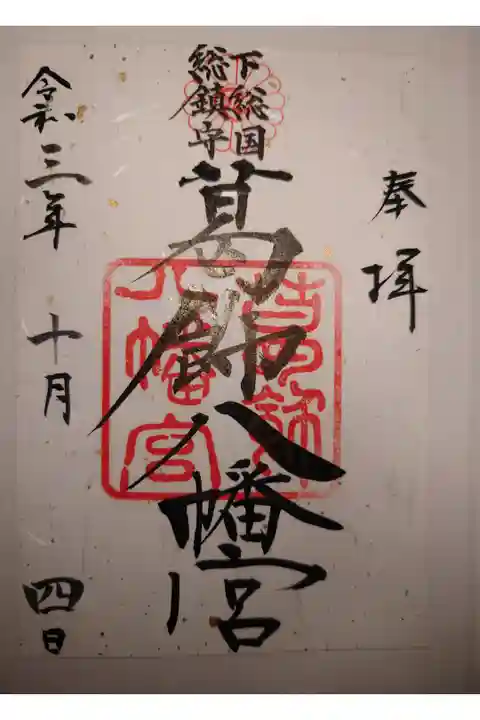 奉拝
下総国
総鎮守
葛飾八幡宮
葛飾
八幡宮
令和三年 十月 四日